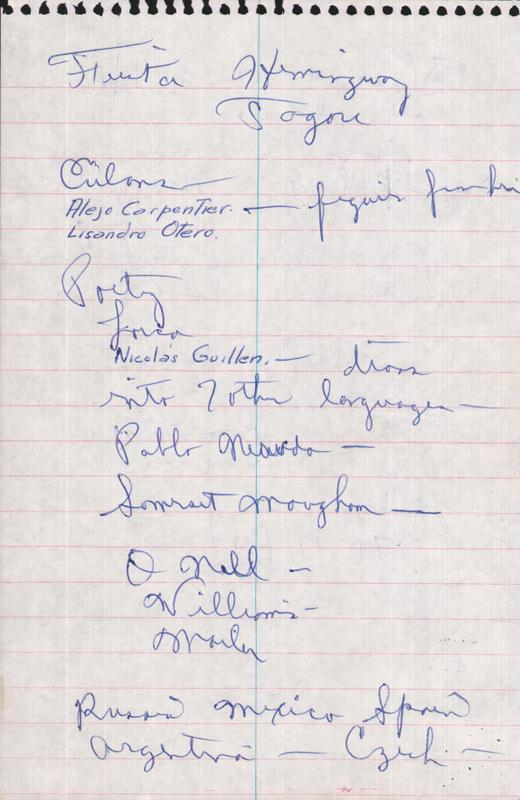 Fiesta Hemingway
Tagore
Cubans
Alejo Carpentier. —
Lisandro Otero.
Poetry
Lorca
Nicolás Guillen. — trans
into 7 other languages —
Pablo Neruda —
Somerset Maugham —
O Neill —
Williams —
Mailer
Russia Mexico Spain
Argentina — Czech —